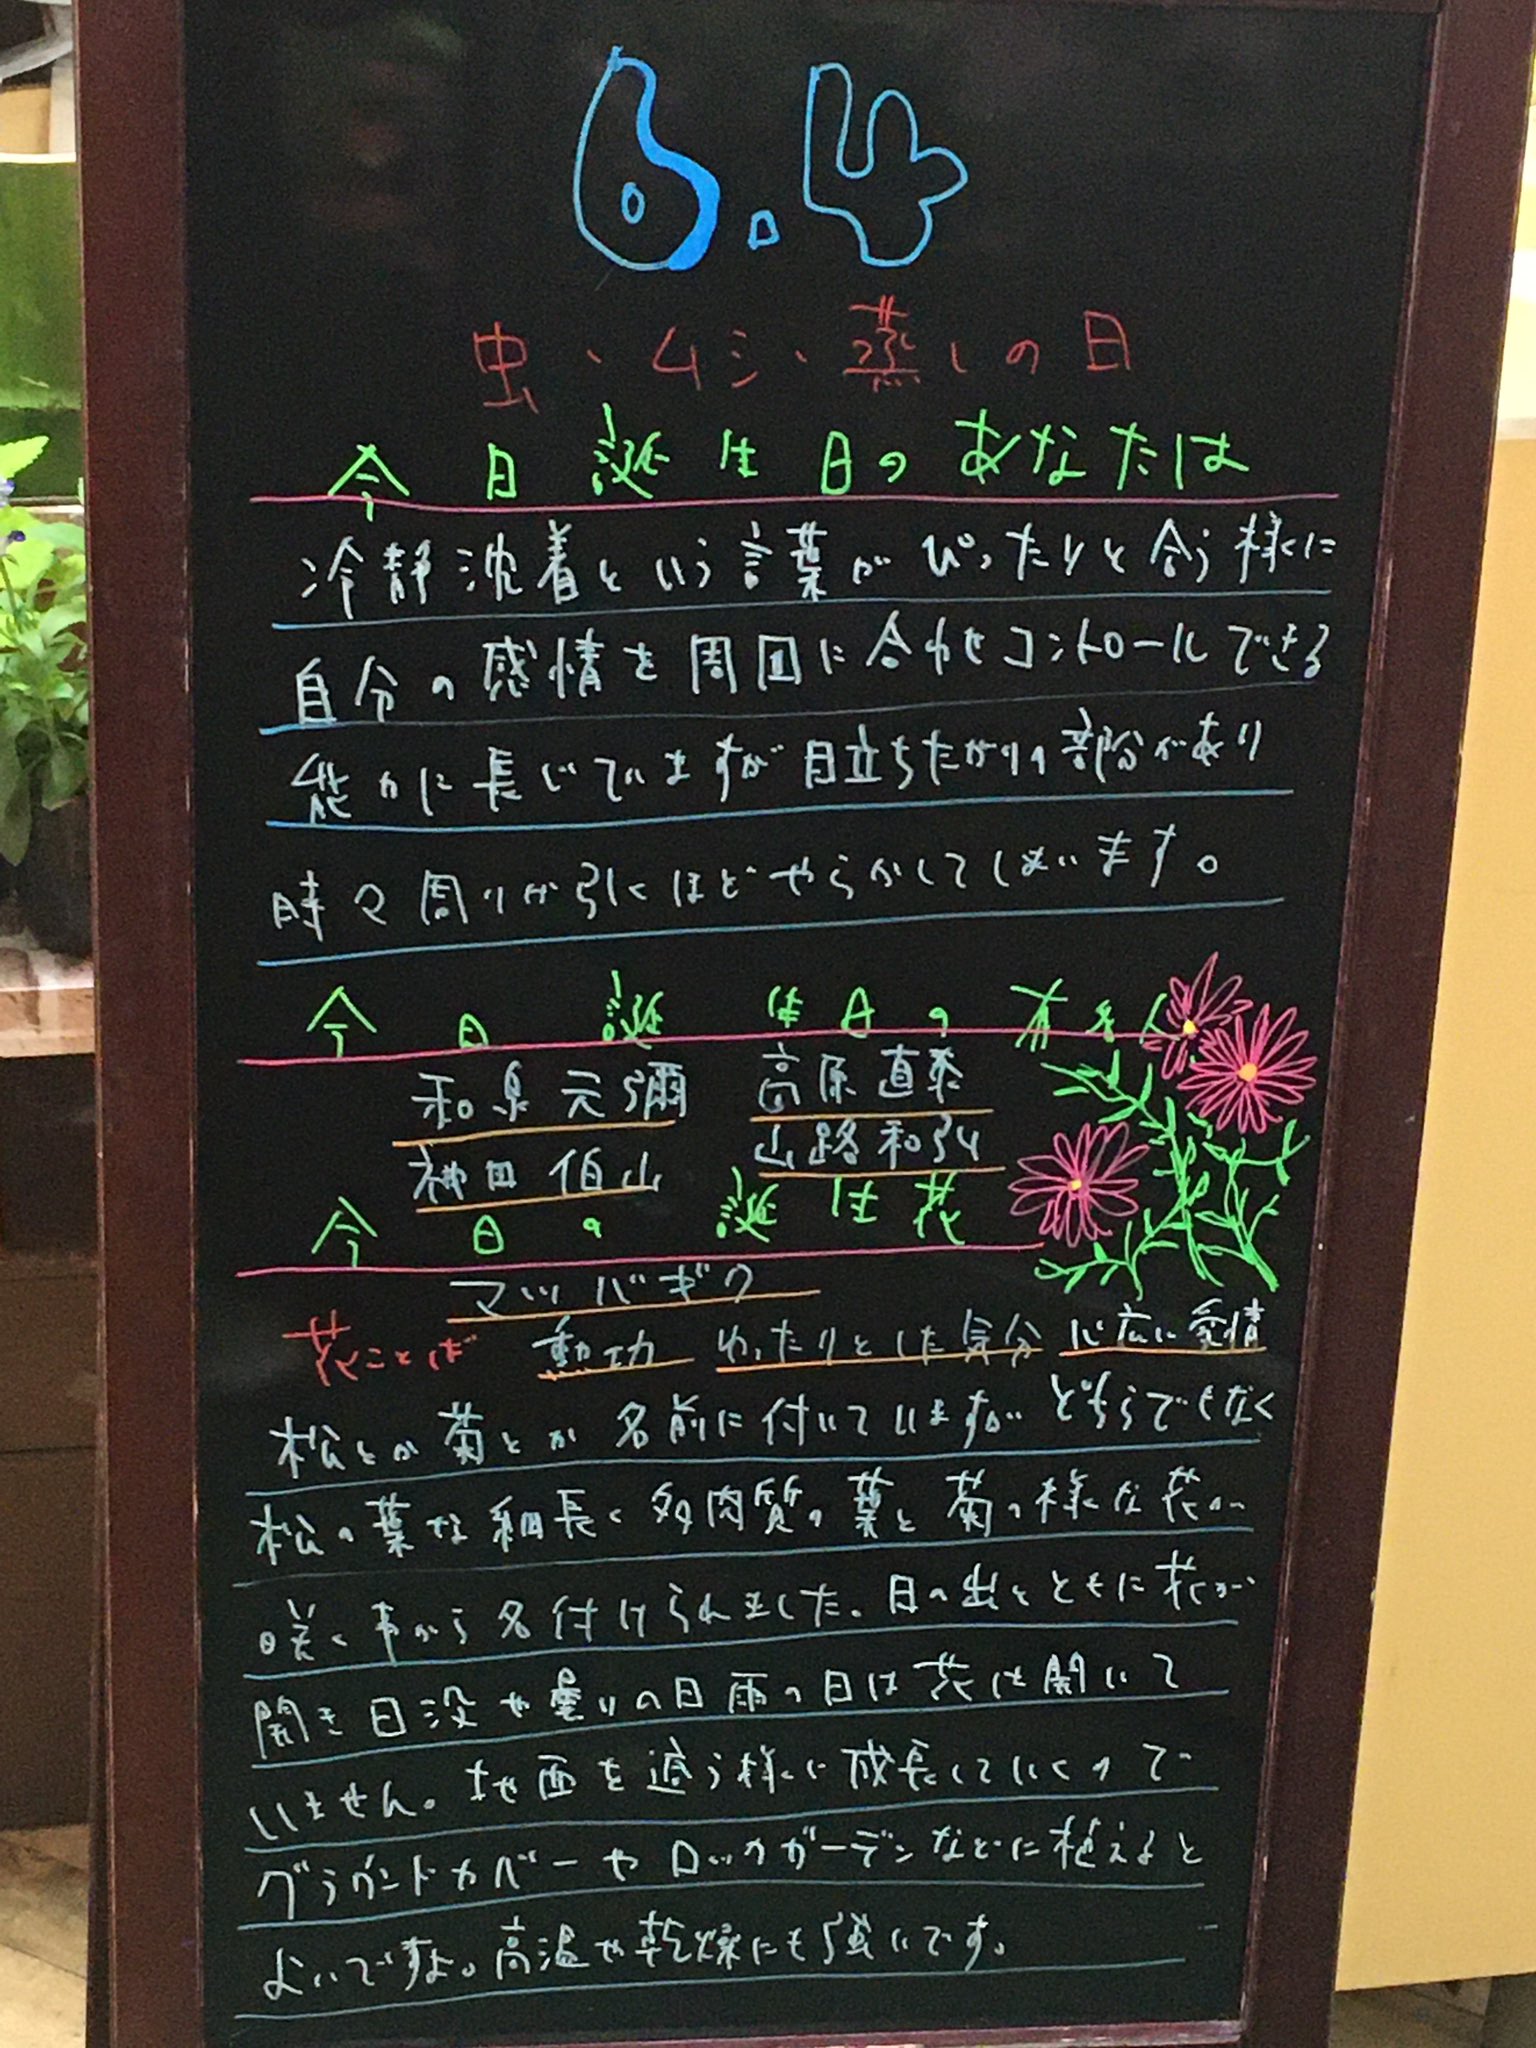 6.4
虫、ムシ、蒸しの日
今日誕生日のあなたは
冷静沈着という言葉がぴったりと合う様に
自分の感情を周囲に合わせコントロールできる
能力に長じていますが目立ちたがりの部分があり
時々周りが引くほどやらかしてしまいます。
今日誕生日の有名人
和泉元彌 高原直泰
神田伯山 山路和弘
今日の誕生花
マツバギク
花ことば 勲功 ゆったりとした気分 心広い愛情
松とか菊とか名前に付いていますがどちらでもなく
松の葉な細長く多肉質の葉と菊の様な花が
咲く事から名付けられました。日の出とともに花が
開き日没や曇りの日雨の日は花は開いて
いません。地面を這う様に成長していくので
グラウンドカバーやロックガーデンなどに植えると
よいですよ。高温や乾燥にも強いです。